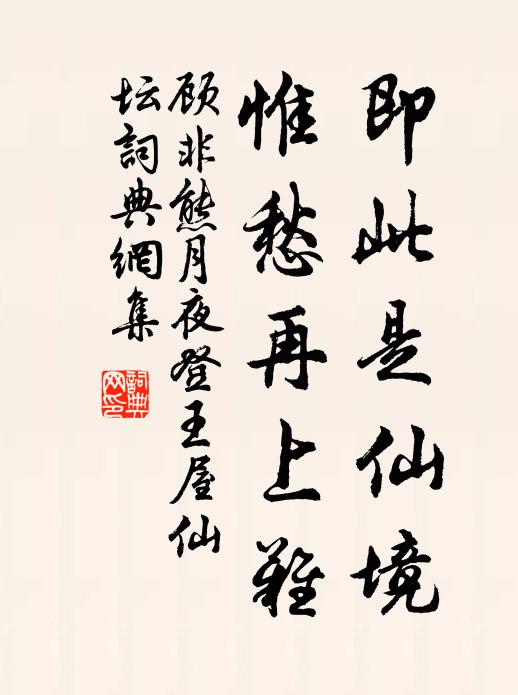 即此是仙境
惟愁再上難
顾非熊月夜登王屋仙
坛詞典網集
詞典
网印